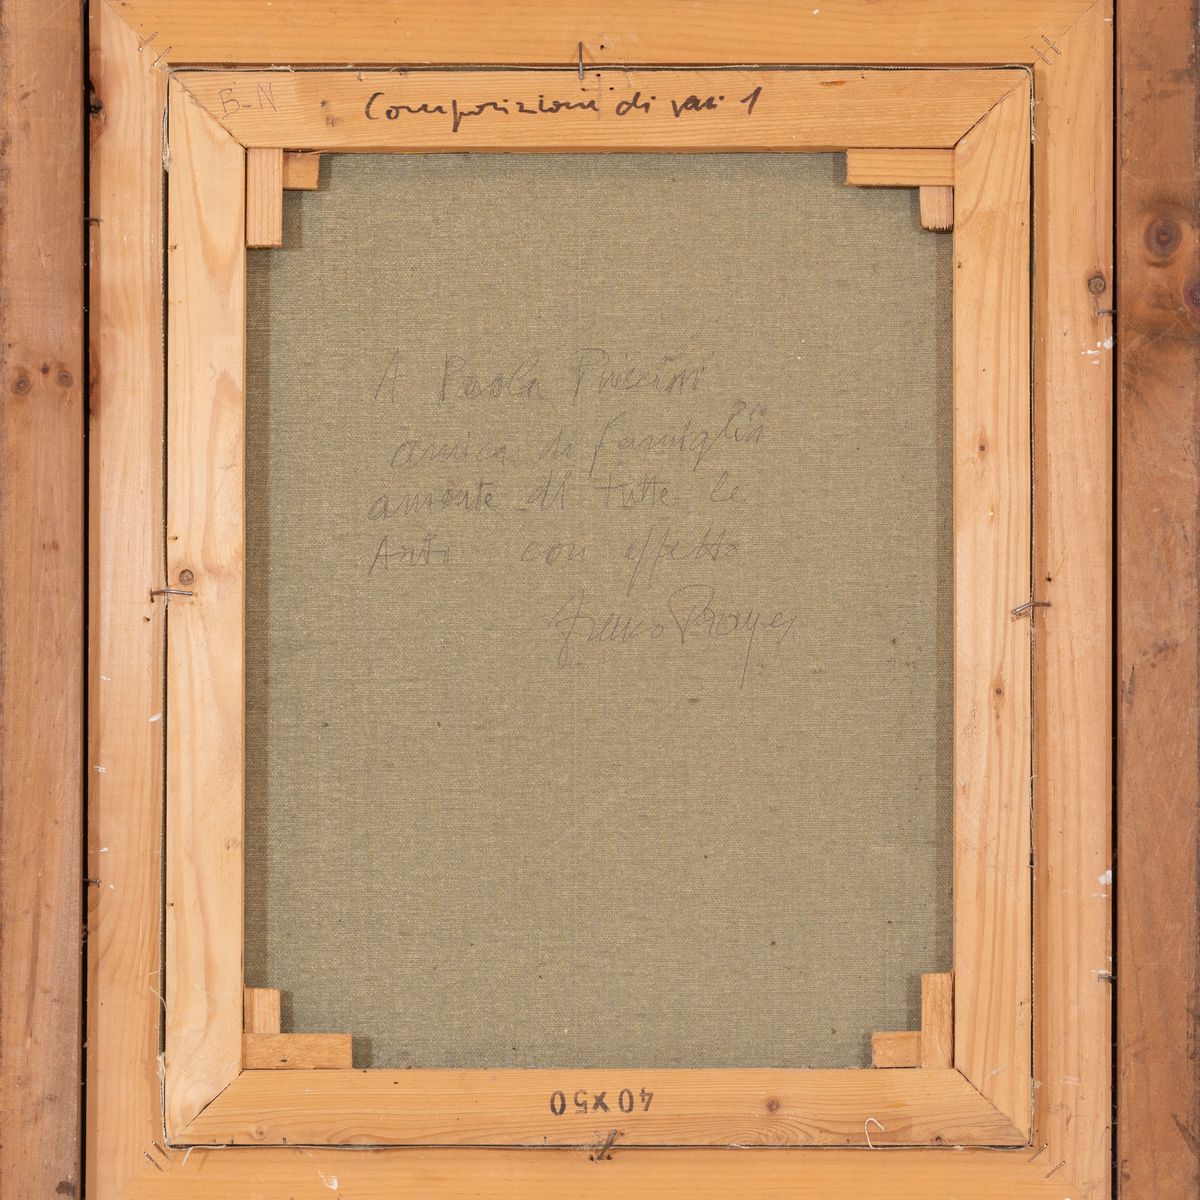 B-N
Composizione di vasi 1
A Paola
amica di famiglia
amante di tutte le
Arti con affetto
Franco
40x50